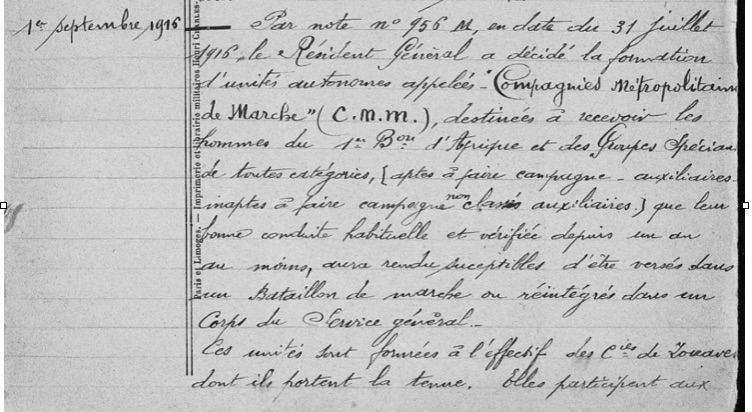 1er septembre 1916
Par note n° 956 M, en date du 31 juillet
1916, le Résident Général a décidé la formation
d'unités autonomes appelées "Compagnies Métropolitain
de Marche" (C.M.M.), destinées à recevoir les
hommes du 1er Bon d'Afrique et des Groupes Spéciau
de toutes catégories, [aptes à faire campagne - auxiliaires -
inaptes à faire campagne non classés auxiliaires] que leur
bonne conduite habituelle et vérifiée depuis un an
au moins, aura rendu suceptibles d'être versés dans
un Bataillon de marche ou réintégrés dans un
Corps du Service général -
Ces unités sont formées à l'effectif des Cies de Zouaves
dont ils portent la tenue. Elles participent aux
Paris et Limoges. — Imprimerie et librairie militaires Henri CHARLES-